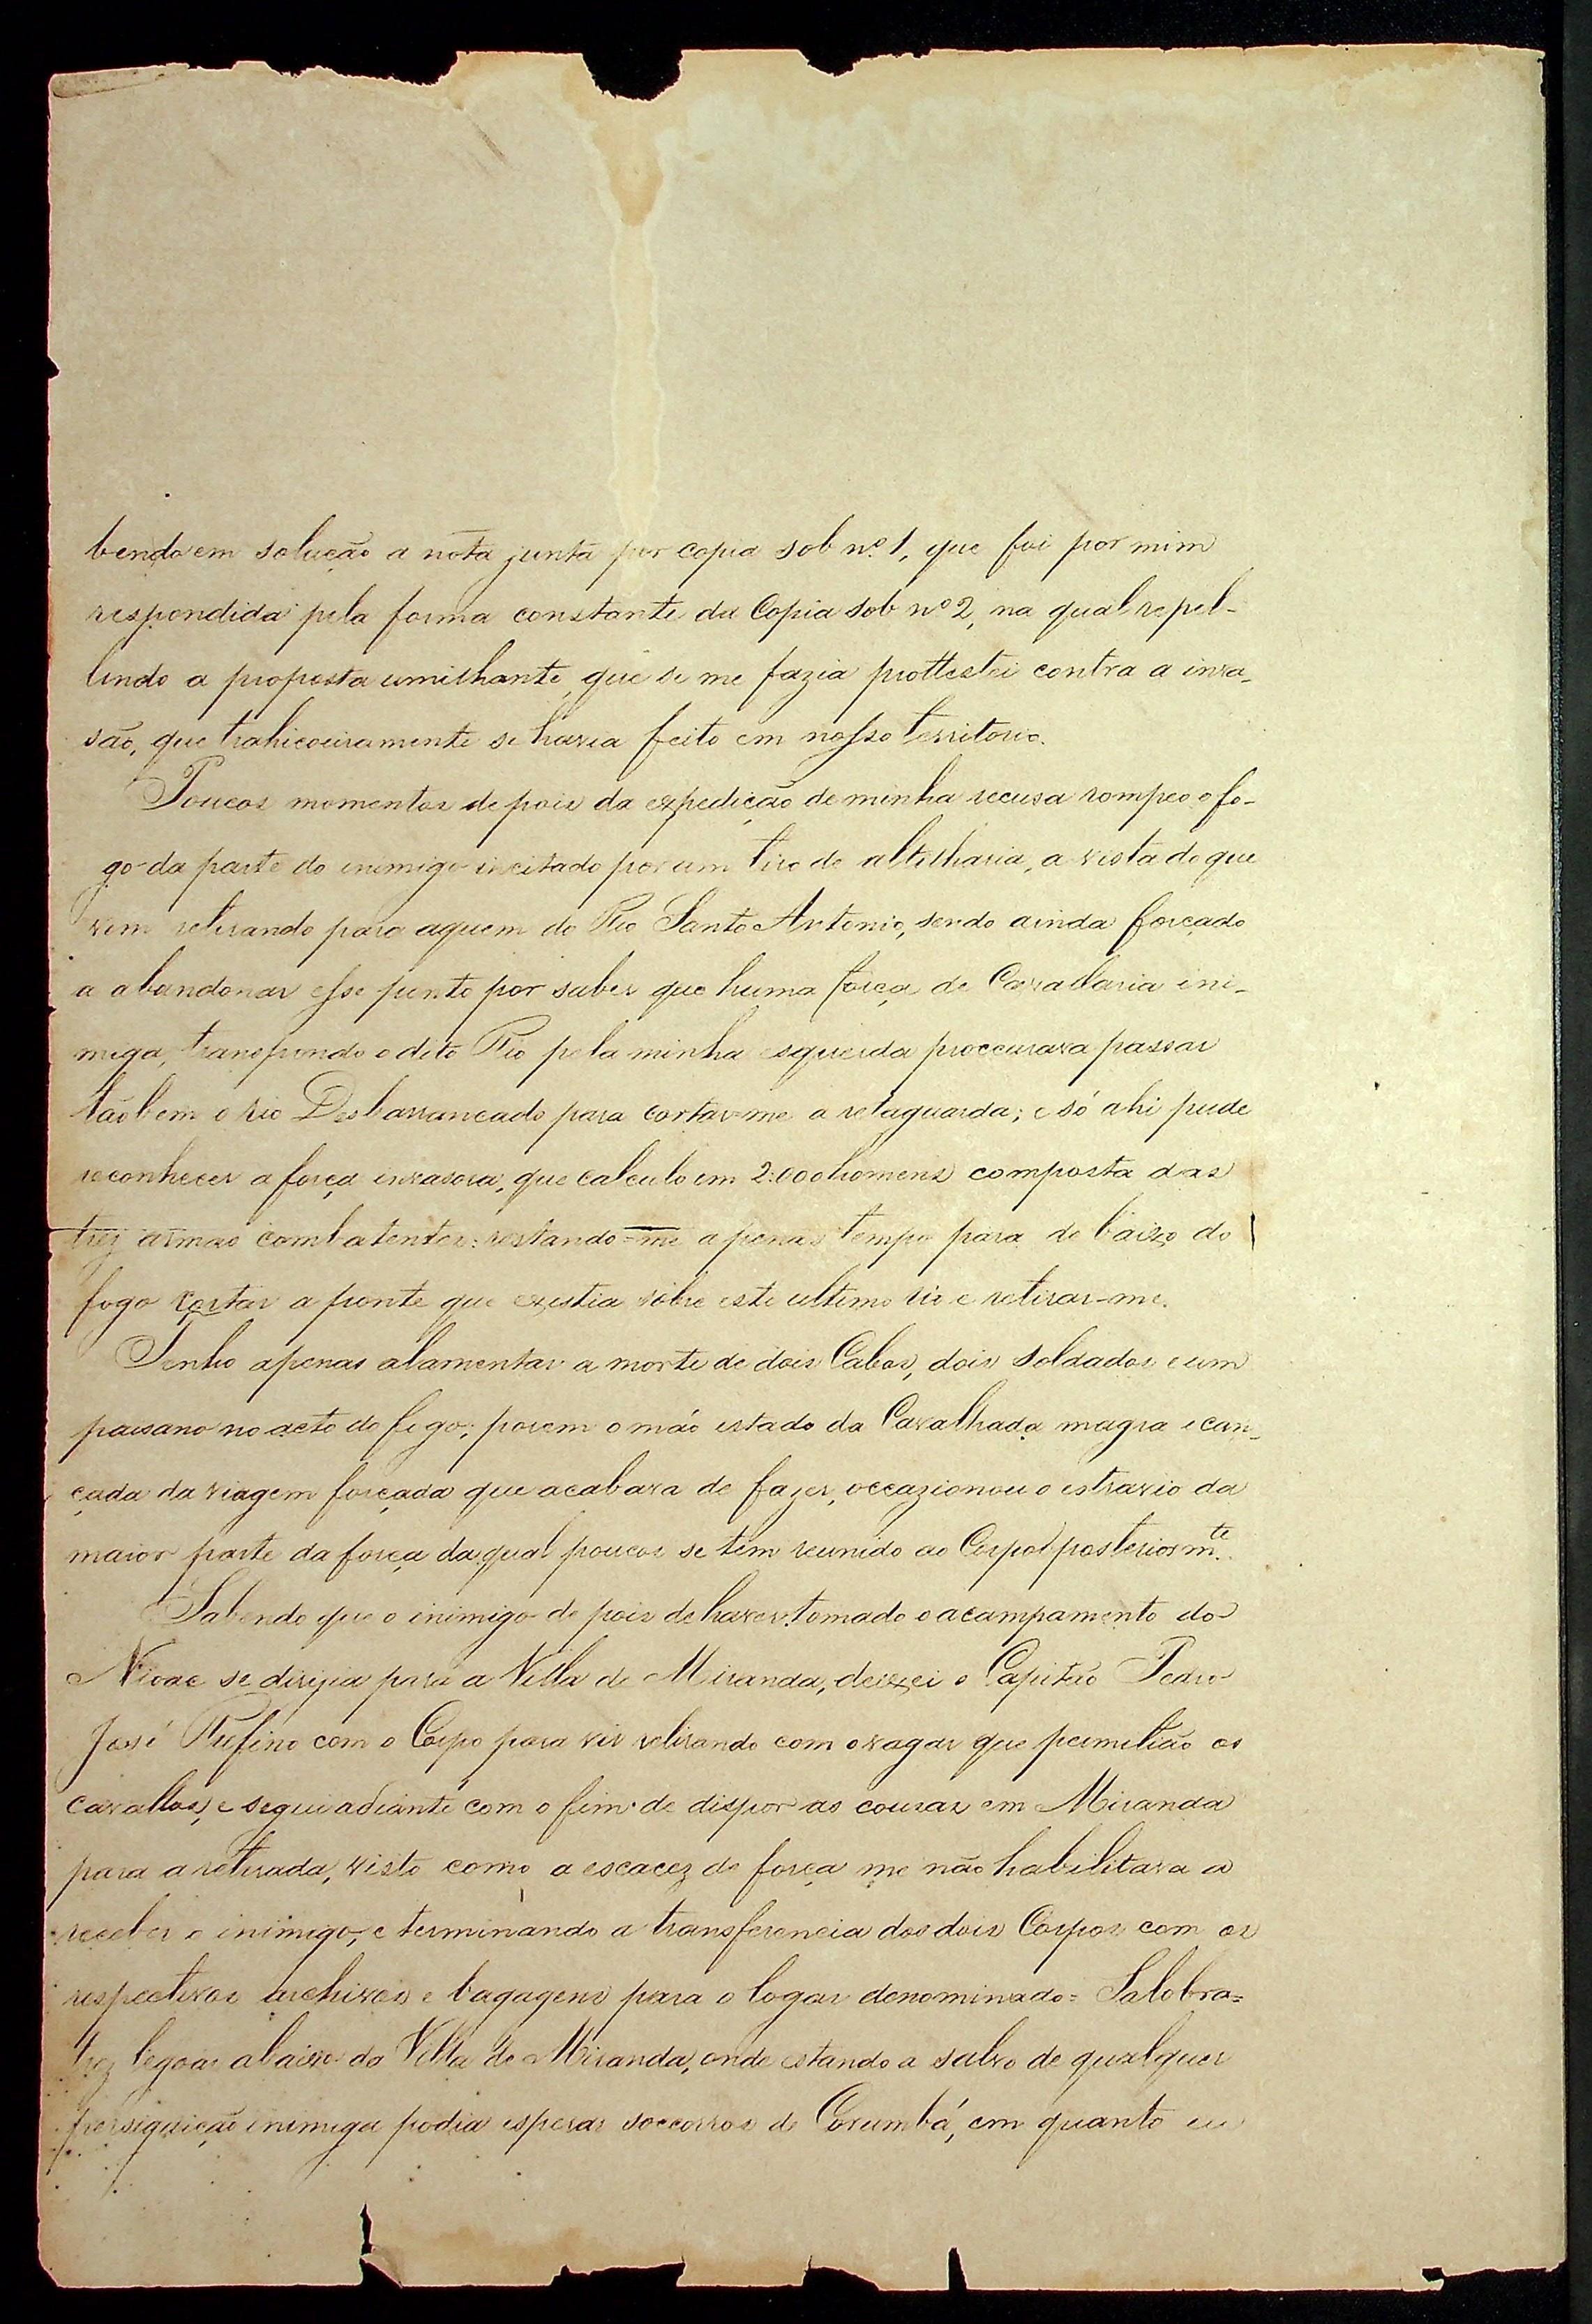 bendo em solução a nota junta por copia sob nº 1, que foi por mim
respondida pela forma constante da Copia sob nº 2, na qual repel-
lindo a proposta umilhante, que se me fazia prottestei contra a inva-
são, que trahiçoeiramente se havia feito em nosso territorio.
Poucos momentos depois da expedição de minha recusa rompeo o fo-
go da parte do inimigo incitado por um tiro de altilharia, a vista do que
vim retirando para aquem do Rio Santo Antonio, sendo ainda forçado
a abandonar esse ponto por saber que huma força de Cavallaria ini-
miga, transpondo o dito Rio pela minha esquerda proccurava passar
tãobem o rio Desbarrancado para cortar-me a retaguarda; e só ahi pude
reconhecer a força invasora, que calculo em 2:000 homens composta das
trez armas combatentes: restando-me apenas tempo para de baixo do
fogo cortar a ponte que existia sobre este ultimo rio e retirar-me.
Tenho apenas alamentar a morte de dois Cabos, dois soldados e um
paisano no acto do fogo; porem o máo estado da Cavalhada magra e can-
çada da viagem forçada que acabava de fazer, occazionou o estravio da
maior parte da força da qual poucos se tem reunido ao Corpo posteriormte.
Sabendo que o inimigo depois de haver tomado o acampamento do
Nioac se dirijia para a Villa de Miranda, deixei o Capitão Pedro
José Rufino com o Corpo para vir retirando com o vagar que permitião os
cavallos, e segui adiante com o fim de dispor as cousas em Miranda
para a retirada, visto como a escacez de força me não habilitava a
receber o inimigo, e terminando a transferencia dos dois Corpos com os
respectivos archivos e bagagens para o logar denominado= Salobra=
trez legoas abaixo da Villa de Miranda, onde estando a salvo de qualquer
persiguição inimiga podia esperar soccorros de Corumbá, em quanto eu